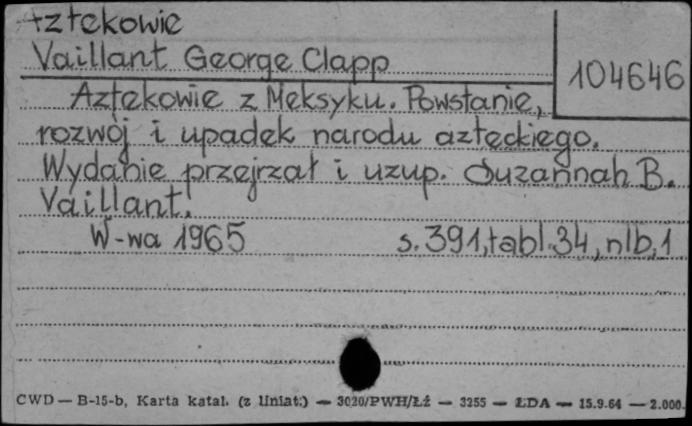 Aztekowie
Vaillant George Clapp
104646
Aztekowie z Meksyku. Powstanie,
rozwój i upadek narodu azteckiego.
Wydanie przejrzał i uzup. Suzannah B.
Vaillant.
W-wa 1965 s. 391, tabl. 34, nlb. 1
CWD — B-15-b, Karta katal. (z liniat.) — 3020/PWH/Łż — 3255 — ŁDA — 15.9.64 — 2.000.